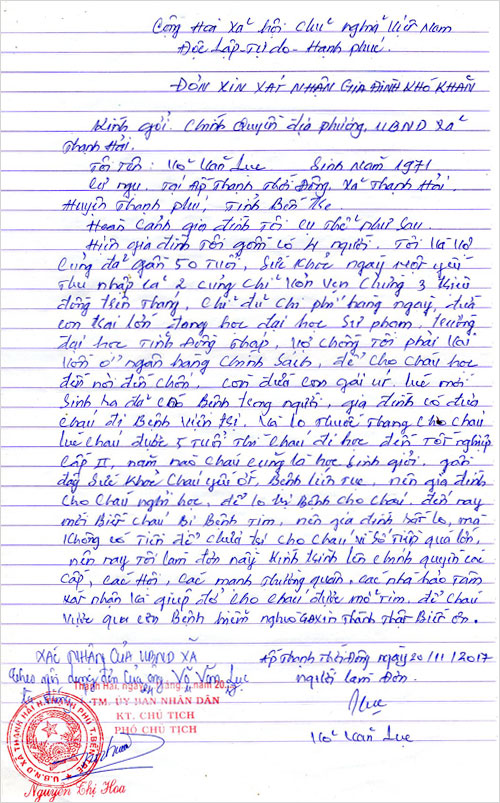 Cộng Hoà Xã hội Chủ nghĩa Việt Nam
Độc Lập - Tự do - Hạnh phúc.
ĐƠN XIN XÁC NHẬN GIA ĐÌNH KHÓ KHĂN
Kính gửi. Chính Quyền địa phương, UBND xã
Thạnh Hải.
Tôi tên: Võ Văn Lục Sinh Năm 1971
Cư ngụ. Tại Ấp Thạnh Thới Đông. Xã Thạnh Hải.
Huyện Thạnh phú, Tỉnh Bến Tre.
Hoàn cảnh gia đình Tôi cụ thể như sau.
Hiện gia đình Tôi gồm có 4 người. Tôi và vợ
cũng đã gần 50 tuổi, Sức khoẻ ngày một yếu
thu nhập cả 2 cũng chỉ vỏn vẹn chừng 3 triệu
đồng trên tháng, chỉ đủ chi phí hàng ngày, đứa
con trai lớn đang học đại học Sư phạm, trường
đại học Tỉnh Đồng Tháp, vợ chồng Tôi phải vai
vốn ở ngân hàng Chính Sách, để cho cháu học
đến nơi đến chốn. con đứa con gái út. lúc mới
Sinh ra đã có Bệnh trong người, gia đình có đưa
cháu đi Bệnh viện trị. Và lo thuốc thang cho cháu
lúc cháu được 5 tuổi thì cháu đi học đến tốt nghiệp
cấp II, năm nào cháu cũng là học Sinh giỏi. gần
đây Sức khoẻ cháu yếu ớt, Bệnh liên tục, nên gia đình
cho cháu nghỉ học, để lo trị Bệnh cho cháu. đến nay
mới Biết cháu Bị Bệnh tim, nên gia đình rất lo, mà
không có tiền để chữa trị cho cháu vì số tiền quá lớn,
nên nay tôi làm đơn này kính trình lên chính quyền các
cấp, các Hội, các mạnh thường quân, các nhà hảo tâm
xác nhận và giúp đỡ cho cháu được mổ tim. để cháu
vượt qua cơn Bệnh hiểm nghèo Thành thật Biết ơn.
XÁC NHẬN CỦA UBND XÃ Ấp Thạnh Thới Đông ngày 20/11/2017
Theo nội dung đơn của ông Võ Văn Lục người làm Đơn.
Thạnh Hải, ngày
TM. ỦY BAN NHÂN DÂN
KT. CHỦ TỊCH
PHÓ CHỦ TỊCH
U.B.N.D XÃ THẠNH HẢI H. THẠNH PHÚ T. BẾN TRE
Võ Văn Lục
Nguyễn Thị Hoa